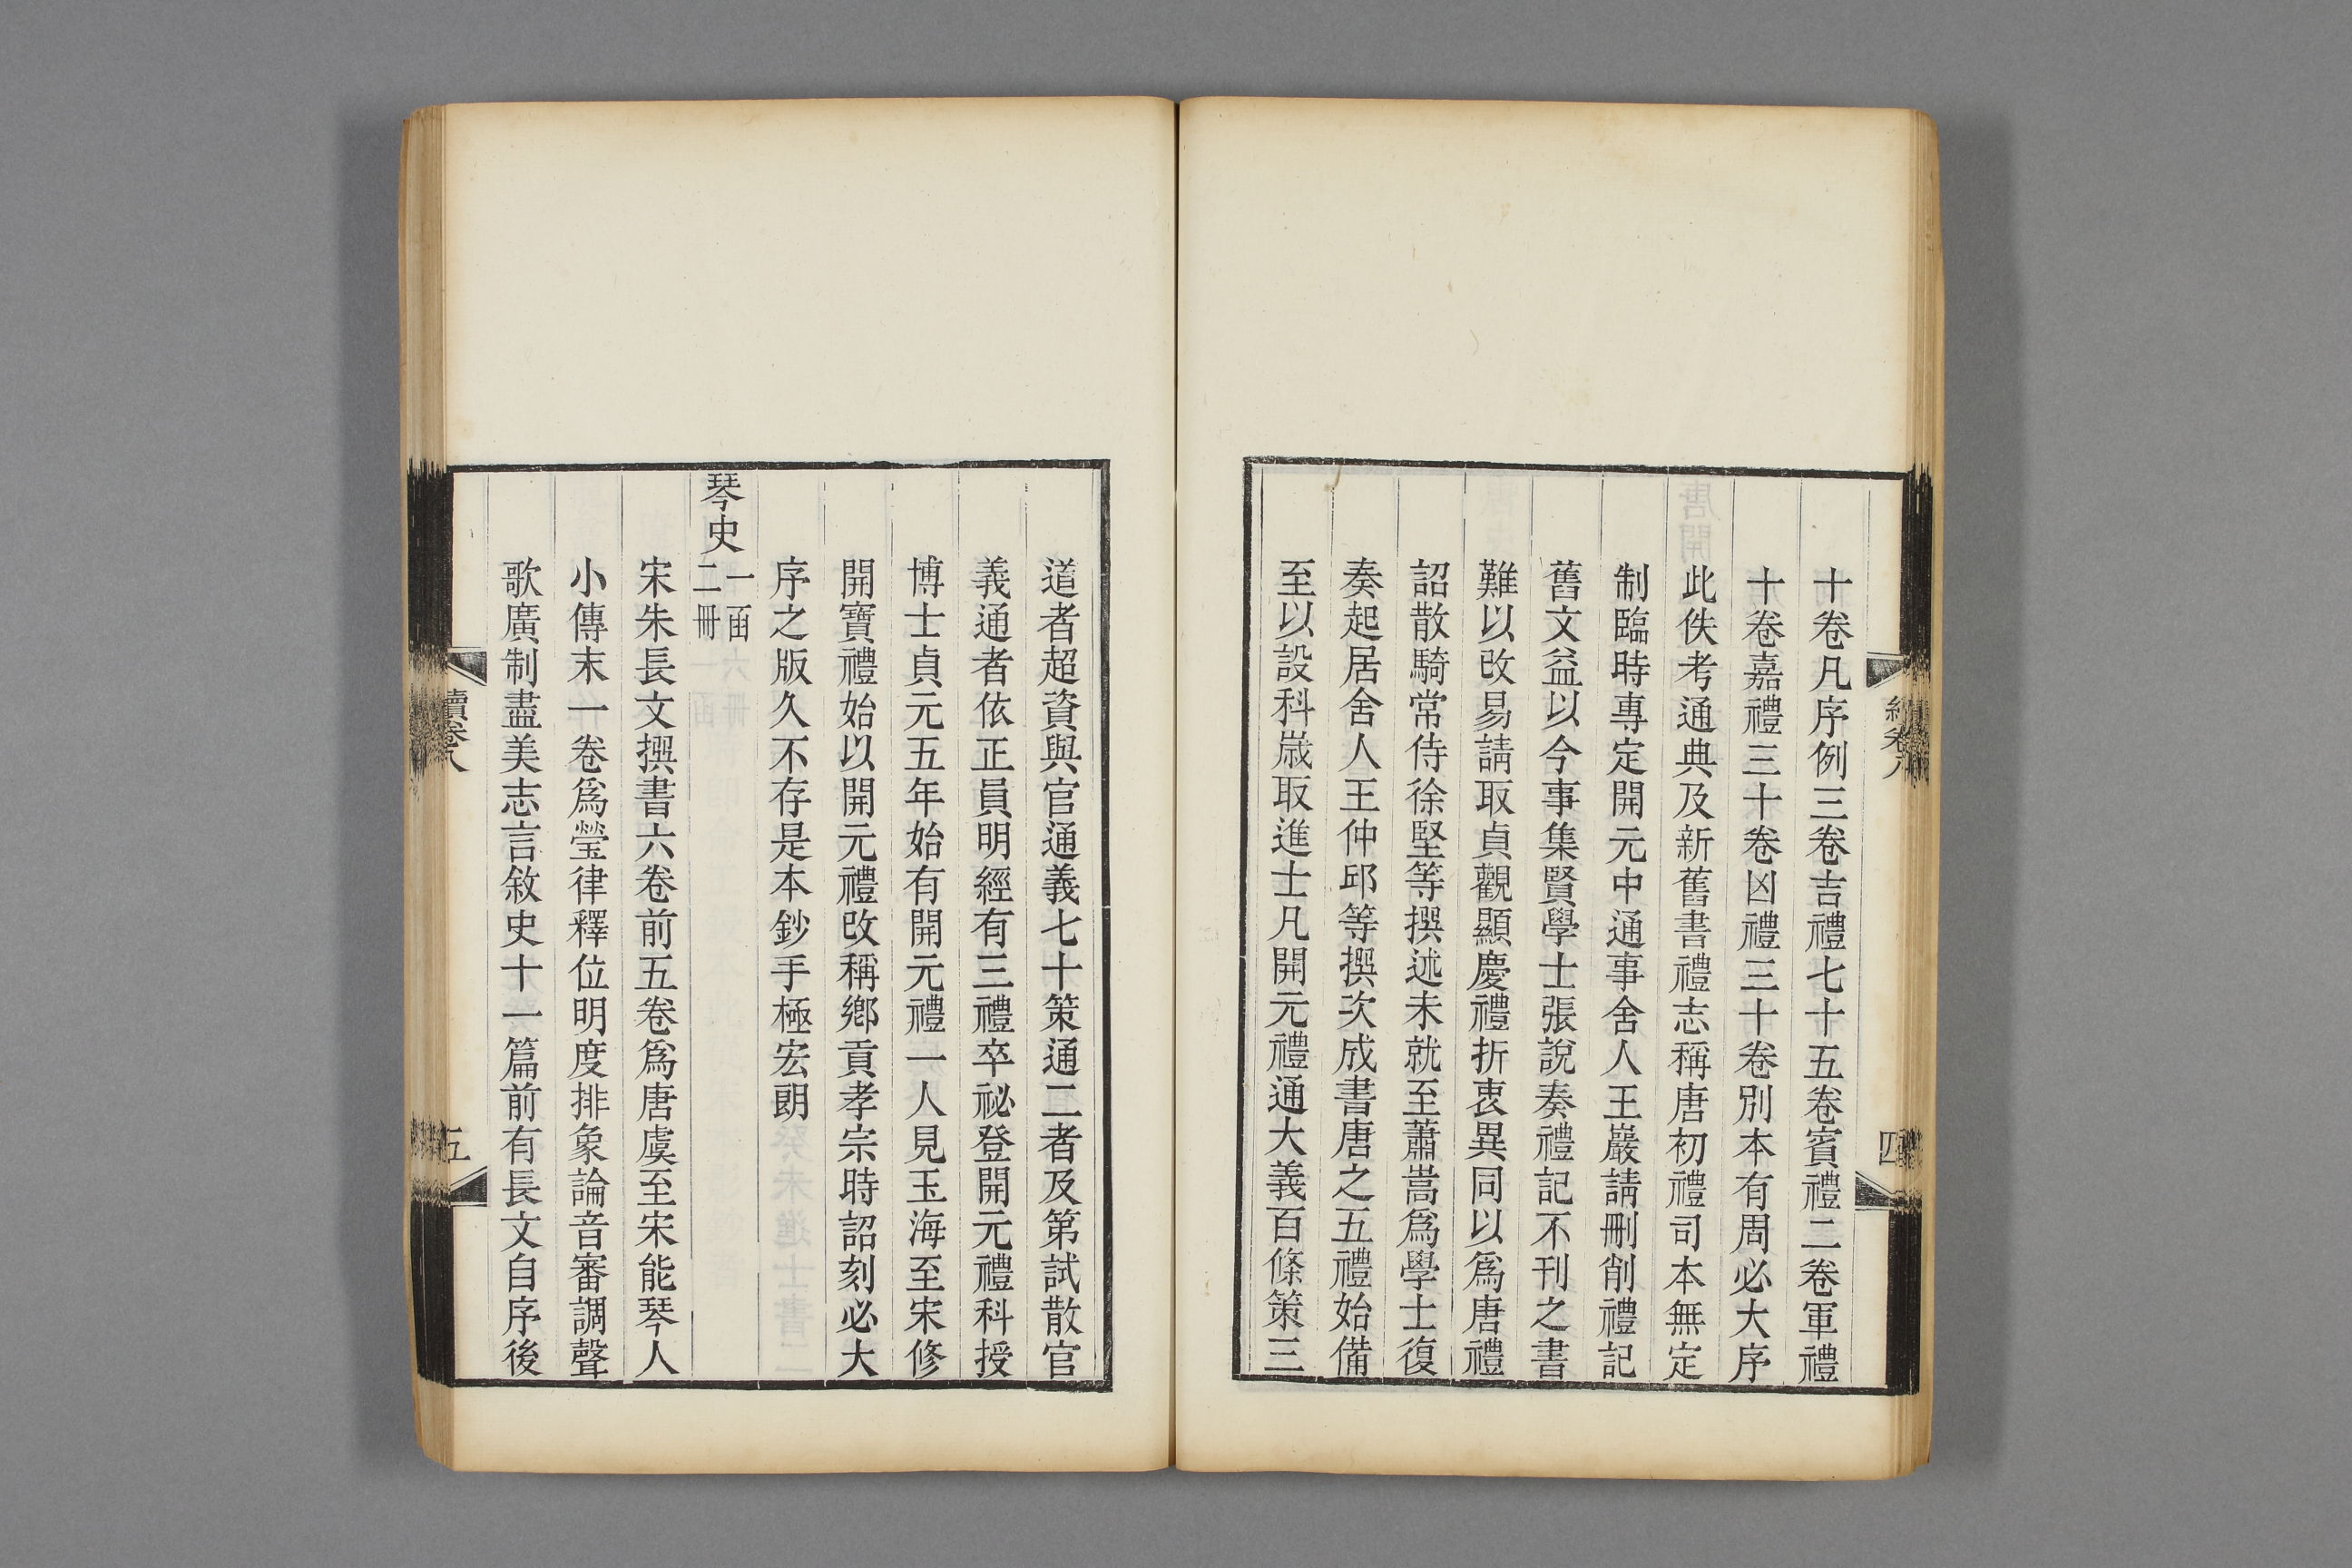 十卷凡序例三卷吉禮七十五卷賓禮二卷軍禮
十卷嘉禮三十卷凶禮三十卷別本有周必大序
此佚考通典及新舊書禮志稱唐初禮司本無定
制臨時專定開元中通事舍人王巖請刪削禮記
舊文益以今事集賢學士張說奏禮記不刊之書
難以改易請取貞觀顯慶禮折衷異同以爲唐禮
詔散騎常侍徐堅等撰述未就至蕭嵩爲學士復
奏起居舍人王仲邱等撰次成書唐之五禮始備
至以設科歲取進士凡開元禮通大義百條策三
道者超資與官通義七十策通二者及第試散官
義通者依正員明經有三禮卒祕登開元禮科授
博士貞元五年始有開元禮一人見玉海至宋修
開寶禮始以開元禮改稱鄉貢孝宗時詔刻必大
序之版久不存是本鈔手極宏朗
琴史 一函
二冊
宋朱長文撰書六卷前五卷爲唐虞至宋能琴人
小傳末一卷爲瑩律釋位明度排象論音審調聲
歌廣制盡美志言敘史十一篇前有長文自序後
續卷八
五